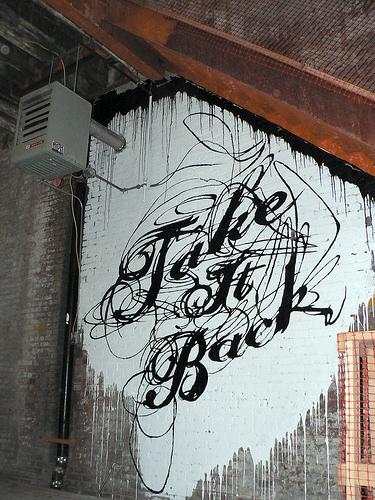 Take
It
Back